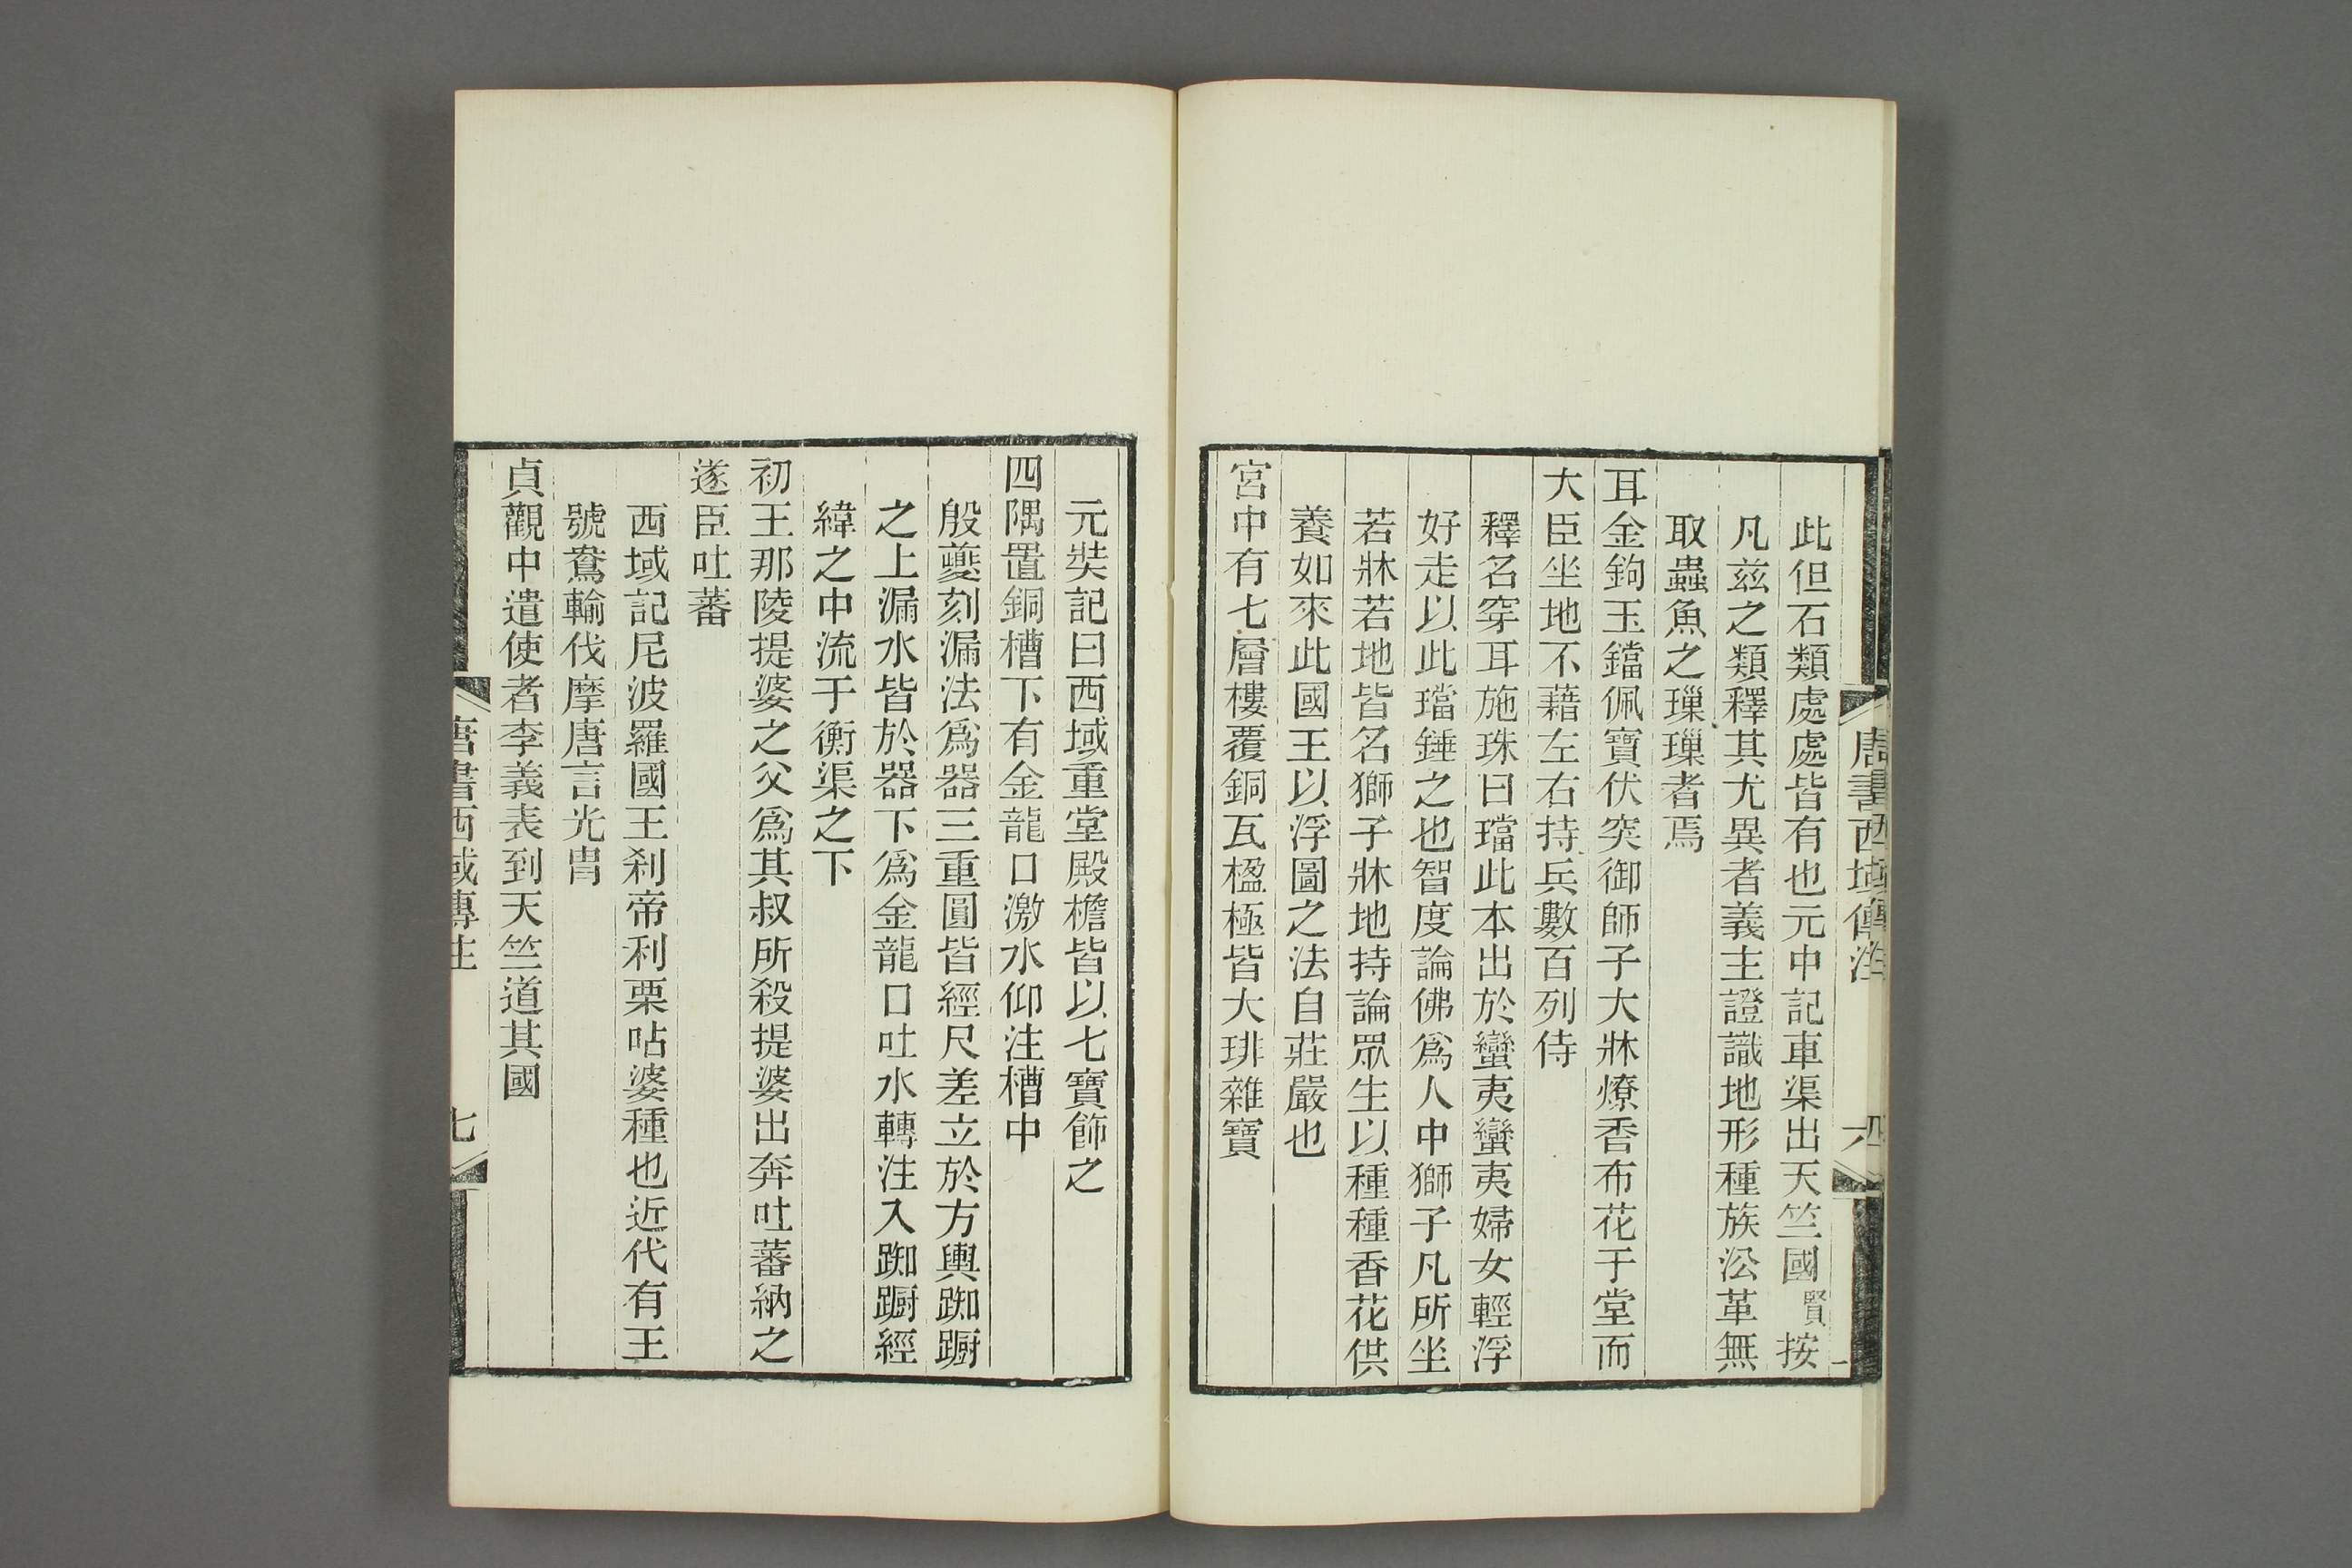 此但石類處處皆有也元中記車渠出天竺國賢按
凡兹之類釋其尤異者義主證識地形種族㳂革無
取蟲魚之璅璅者焉
耳金鉤玉鐺佩寶伏突御師子大牀燎香布花于堂而
大臣坐地不藉左右持兵數百列侍
釋名穿耳施珠曰璫此本出於蠻夷蠻夷婦女輕浮
好走以此璫錘之也智度論佛爲人中獅子凡所坐
若牀若地皆名獅子牀地持論眾生以種種香花供
養如來此國王以浮圖之法自莊嚴也
宮中有七層樓覆銅瓦楹極皆大琲雜寶
元奘記曰西域重堂殿檐皆以七寶飾之
四隅置銅槽下有金龍口激水仰注槽中
殷夔刻漏法爲器三重圓皆經尺差立於方輿踟躕
之上漏水皆於器下爲金龍口吐水轉注入踟躕經
緯之中流于衡渠之下
初王那陵提婆之父爲其叔所殺提婆出奔吐蕃納之
遂臣吐蕃
西域記尼波羅國王刹帝利栗呫婆種也近代有王
號鴦輸伐摩唐言光胄
貞觀中遣使者李義表到天竺道其國
唐書西域傳注
七